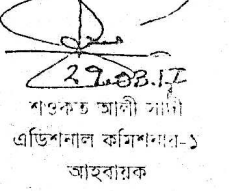 29.03.17
শওকত আলী সাদী
এডিশনাল কমিশনার-১
আহবায়ক